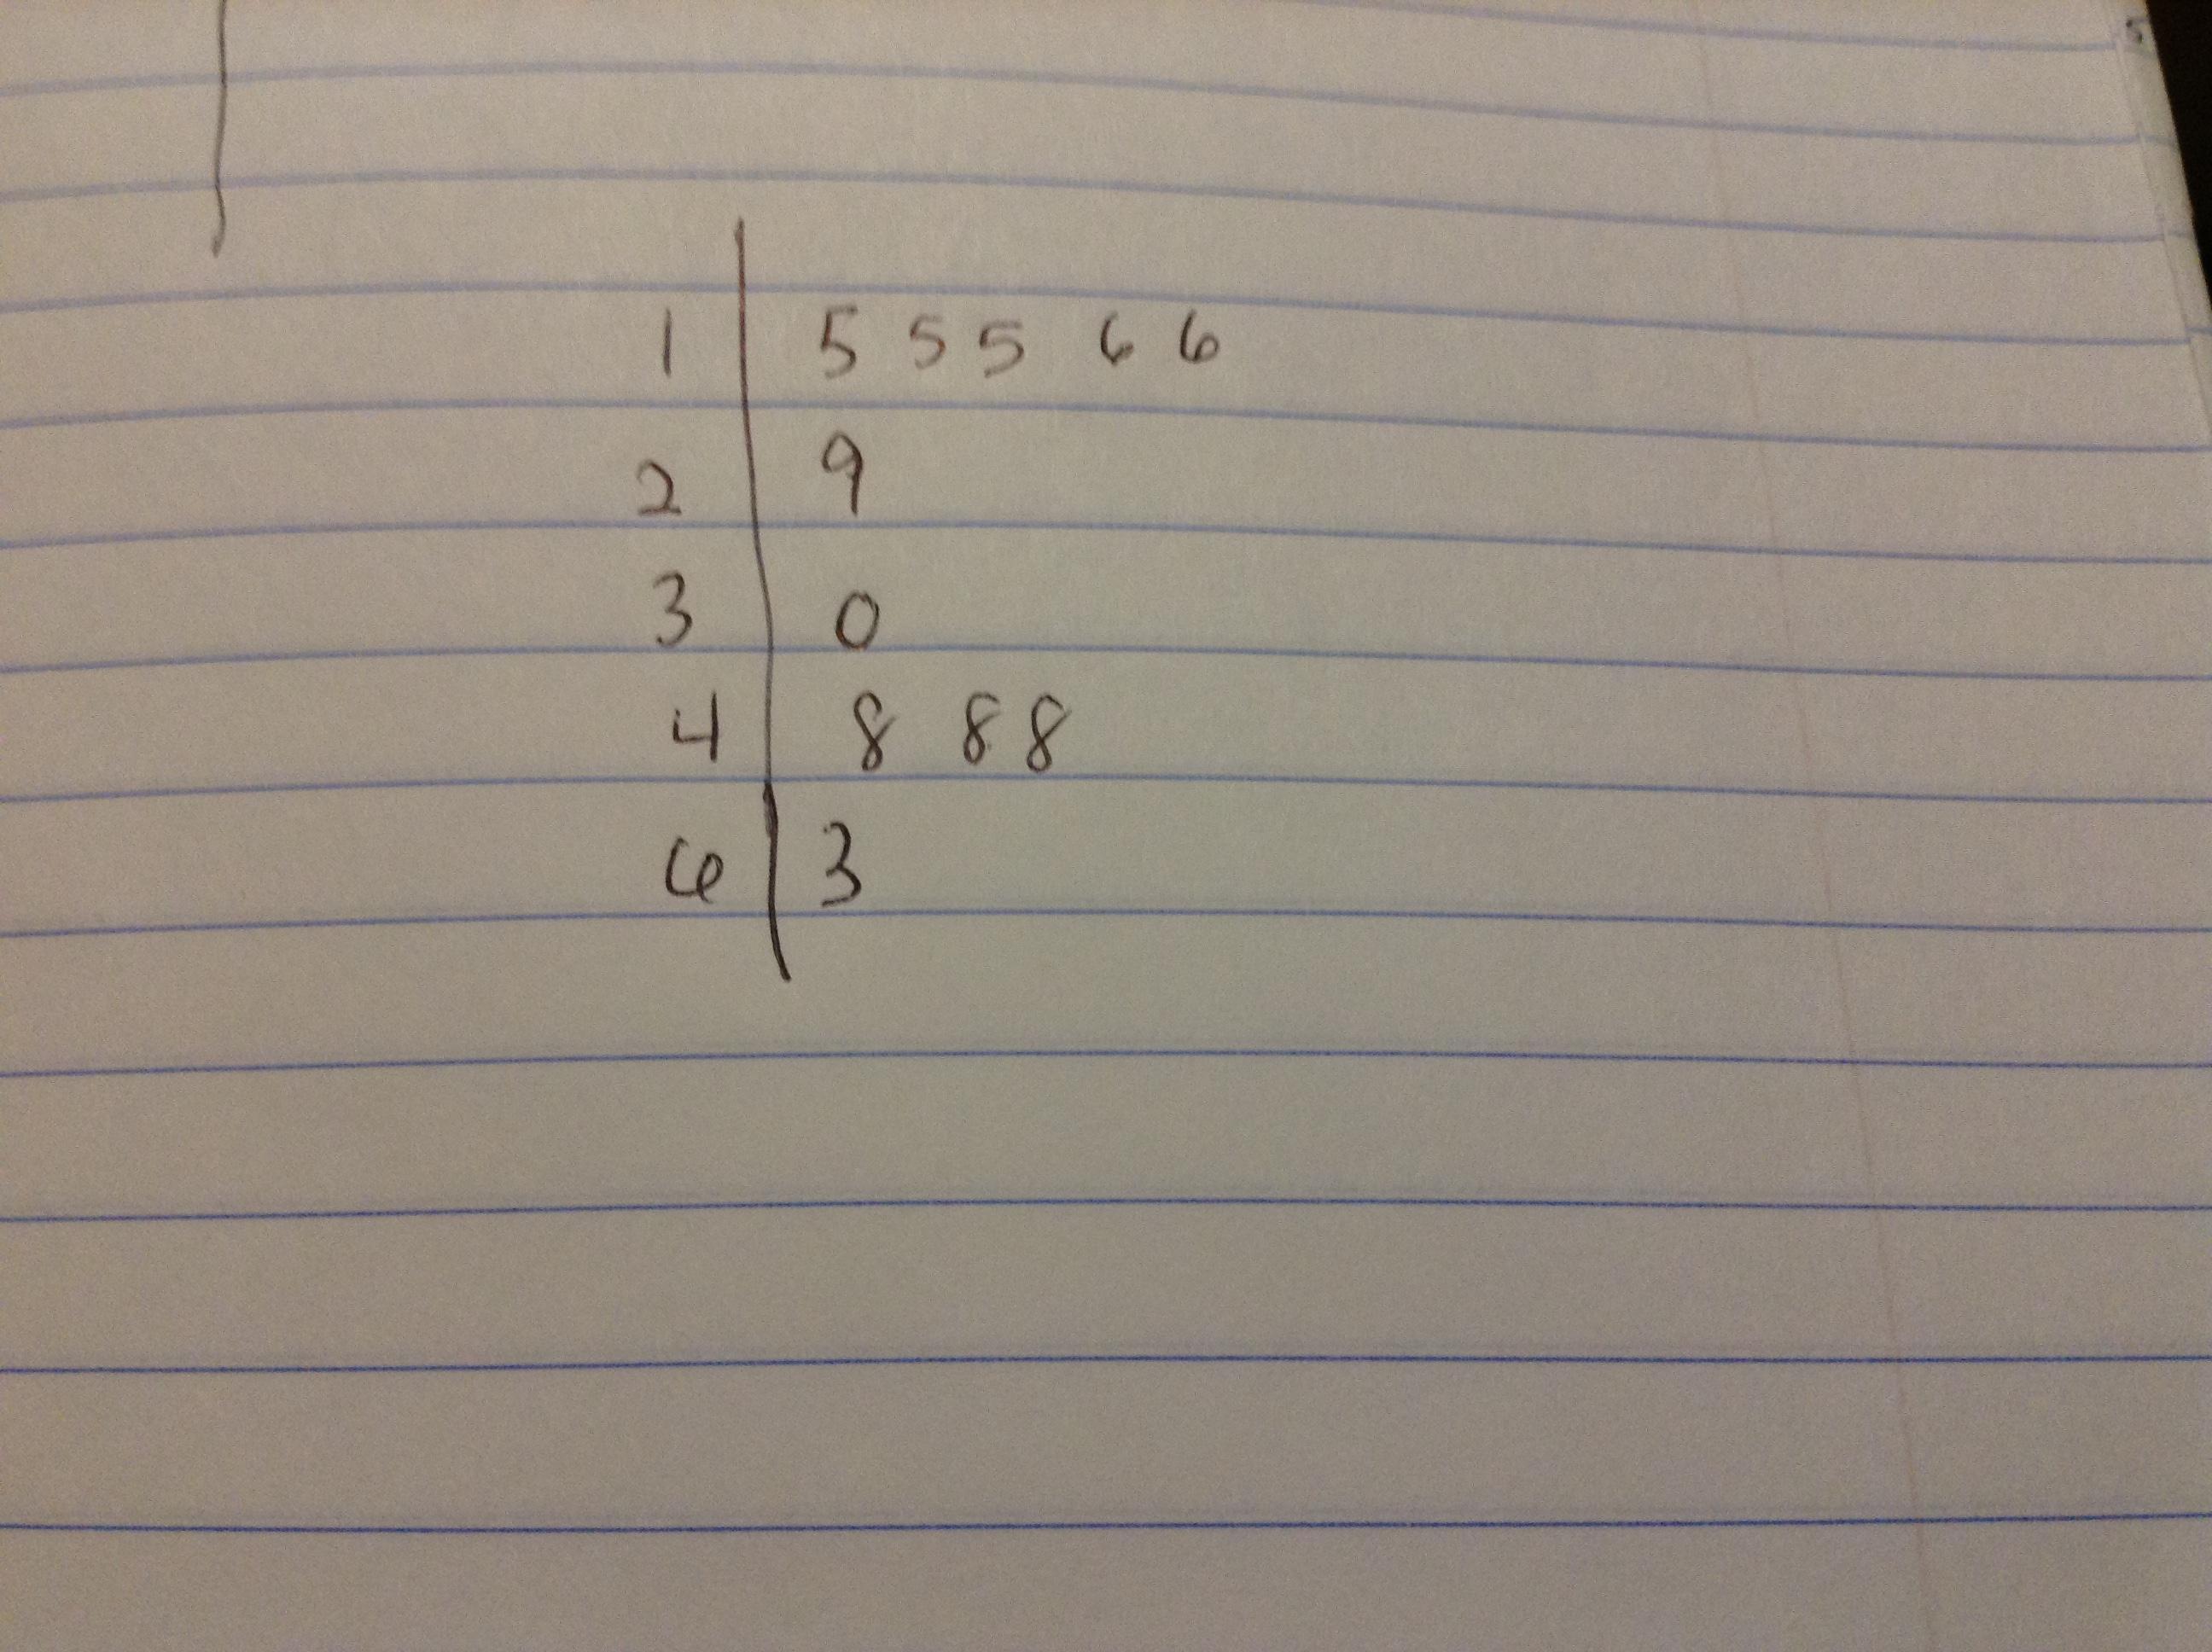 1 | 5 5 5 6 6
2 | 9
3 | 0
4 | 8 8 8
6 | 3